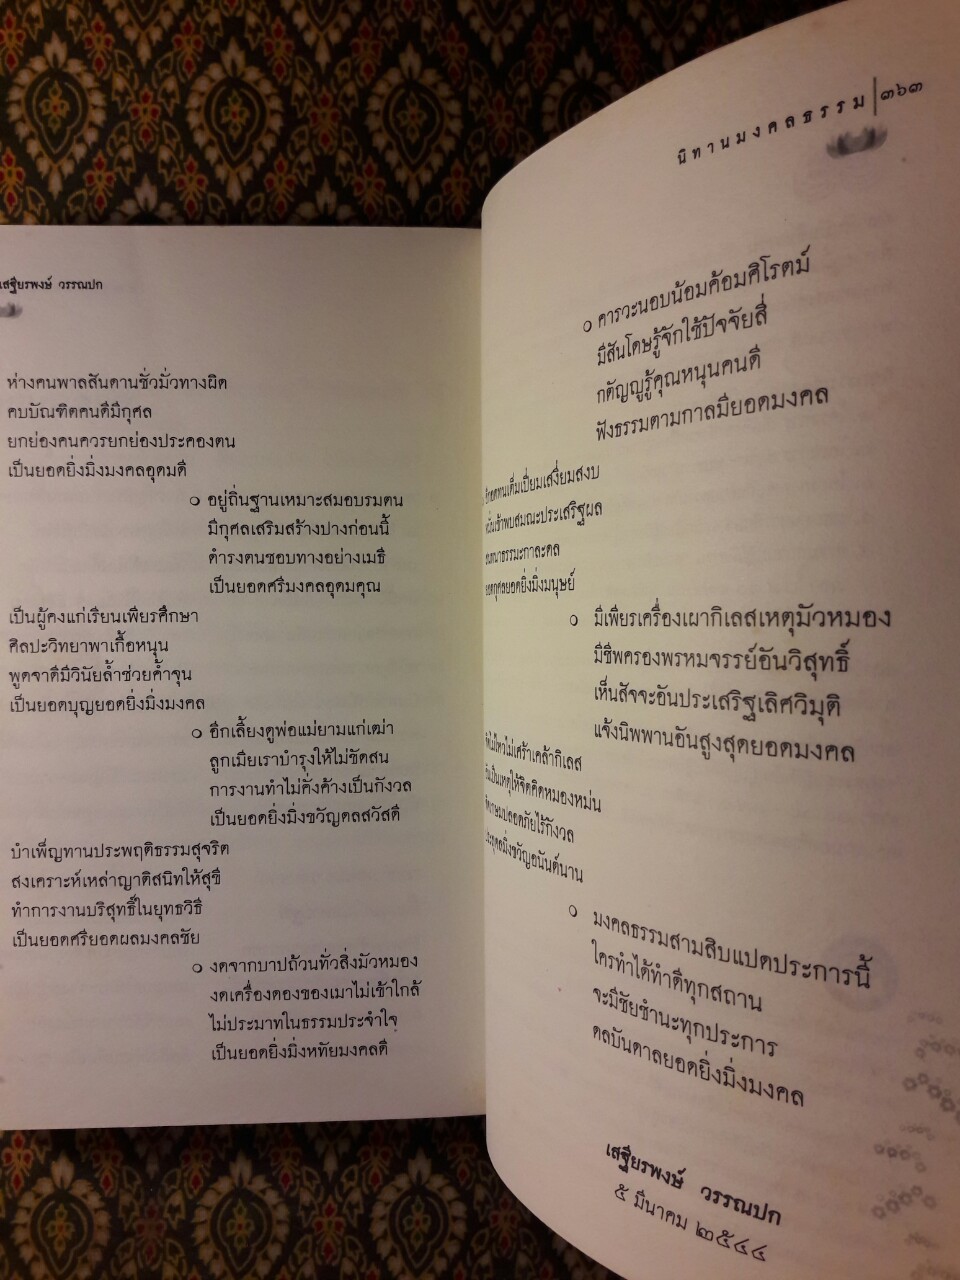 เสฐียรพงษ์ วรรณปก
ห่างคนพาลสันดานชั่วมั่วทางผิด
คบบัณฑิตคนดีมีกุศล
ยกย่องคนควรยกย่องประคองตน
เป็นยอดยิ่งมิ่งมงคลอุดมดี
อยู่ถิ่นฐานเหมาะสมอบรมตน
มีกุศลเสริมสร้างปางก่อนนี้
ดำรงตนชอบทางอย่างเมธี
เป็นยอดศรีมงคลอุดมคุณ
เป็นผู้คงแก่เรียนเพียรศึกษา
ศิลปะวิทยาพาเกื้อหนุน
พูดจาดีมีวินัยล้ำช่วยค้ำจุน
เป็นยอดบุญยอดยิ่งมิ่งมงคล
อีกเลี้ยงดูพ่อแม่ยามแก่เฒ่า
ลูกเมียเราบำรุงให้ไม่ขัดสน
การงานทำไม่คั่งค้างเป็นกังวล
เป็นยอดยิ่งมิ่งขวัญดลสวัสดี
บำเพ็ญทานประพฤติธรรมสุจริต
สงเคราะห์เหล่าญาติสนิทให้สุขี
ทำการงานบริสุทธิ์ในยุทธวิธี
เป็นยอดศรียอดผลมงคลชัย
งดจากบาปถ้วนทั่วสิ่งมัวหมอง
งดเครื่องดองของเมาไม่เข้าใกล้
ไม่ประมาทในธรรมประจำใจ
เป็นยอดยิ่งมิ่งหทัยมงคลดี
นิทานมงคลธรรม ๓๖๓
คารวะนอบน้อมค้อมศิโรตม์
มีสันโดษรู้จักใช้ปัจจัยสี่
กตัญญูรู้คุณหนุนคนดี
ฟังธรรมตามกาลมียอดมงคล
อดทนเต็มเปี่ยมเสงี่ยมสงบ
เข้าพบสมณะประเสริฐผล
ธรรมะกาละดล
ยอดกุศลยอดยิ่งมิ่งมนุษย์
มีเพียรเครื่องเผากิเลสเหตุมัวหมอง
มีชีพครองพรหมจรรย์อันวิสุทธิ์
เห็นสัจจะอันประเสริฐเลิศวิมุติ
แจ้งนิพพานอันสูงสุดยอดมงคล
ไม่เศร้าเคล้ากิเลส
เป็นเหตุให้จิตคิดหมองหม่น
ปลอดภัยไร้กังวล
มิ่งขวัญอนันต์นาน
มงคลธรรมสามสิบแปดประการนี้
ใครทำได้ทำดีทุกสถาน
จะมีชัยชำนะทุกประการ
ดลบันดาลยอดยิ่งมิ่งมงคล
เสฐียรพงษ์ วรรณปก
๕ มีนาคม ๒๕๔๔